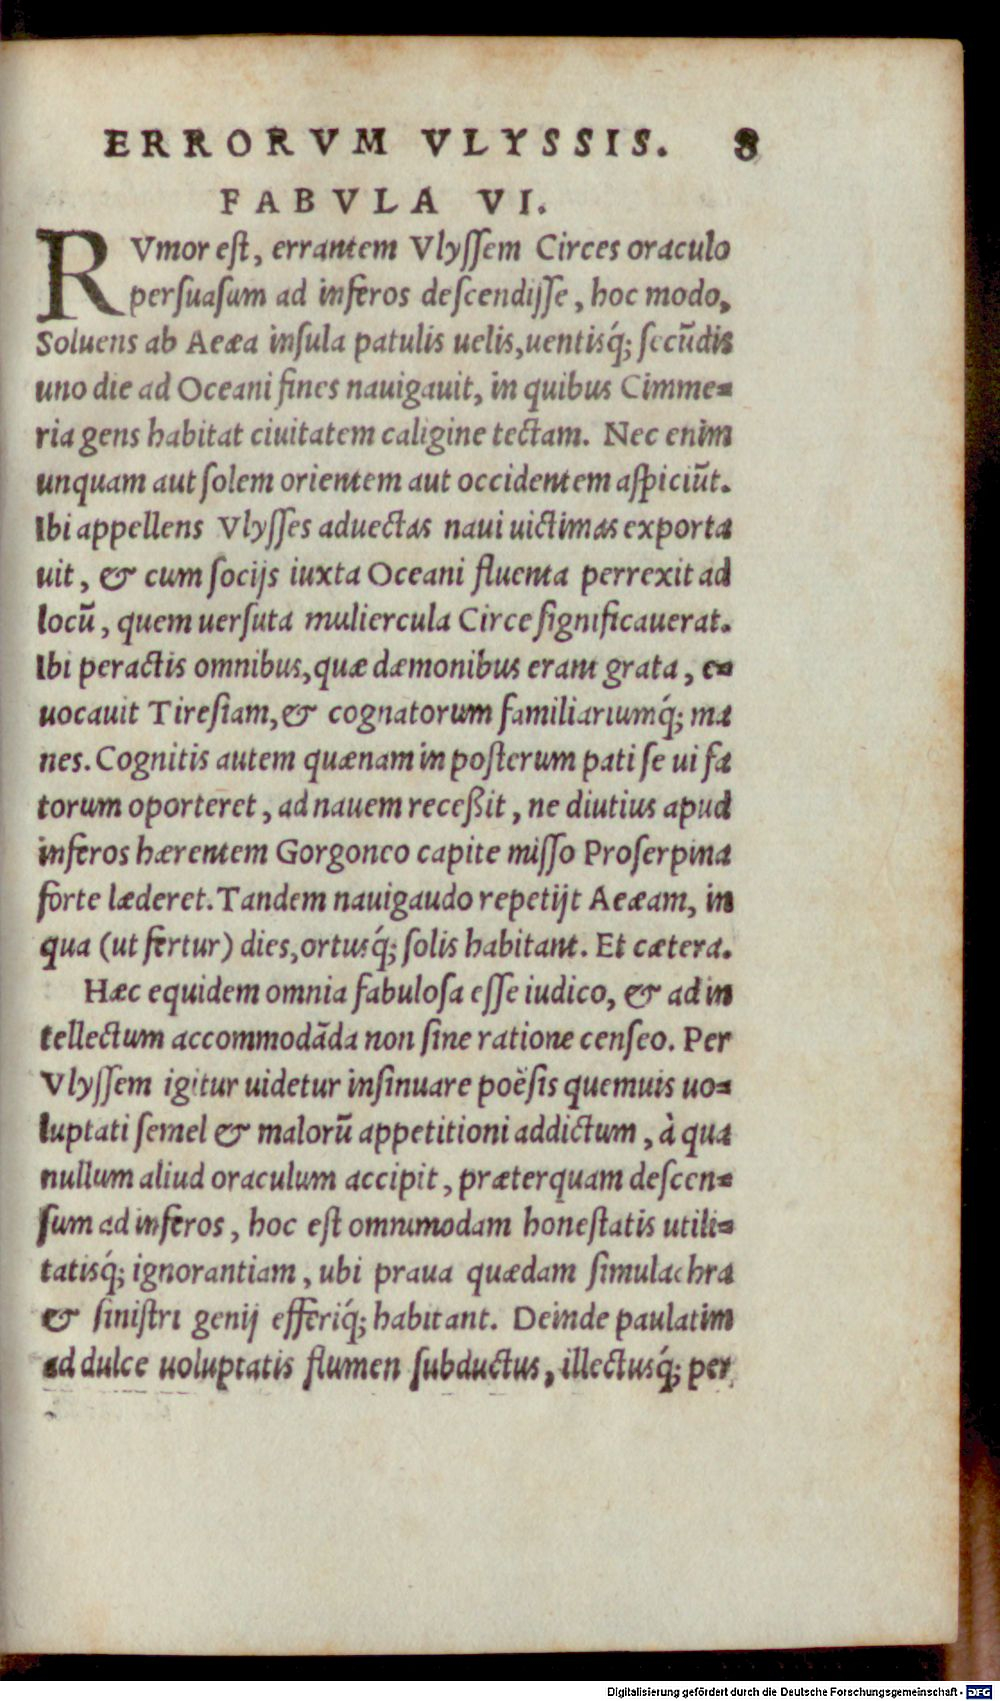 ERRORVM VLYSSIS. 8
FABVLA VI.
RVmor eſt, errantem Vlyſſem Circes oraculo
perſuaſum ad inferos deſcendiſſe, hoc modo,
Soluens ab Aeæa inſula patulis uelis, uentisq́; ſecūdis
uno die ad Oceani fines nauigauit, in quibus Cimme-
ria gens habitat ciuitatem caligine tectam. Nec enim
unquam aut ſolem orientem aut occidentem aſpiciūt.
Ibi appellens Vlyſſes aduectas naui uictimas exporta
uit, & cum ſocijs iuxta Oceani fluenta perrexit ad
locū, quem uerſuta muliercula Circe ſignificauerat.
Ibi peractis omnibus, quæ dæmonibus erant grata, e-
uocauit Tireſiam, & cognatorum familiariumq́; ma
nes. Cognitis autem quænam in poſterum pati ſe ui fa
torum oporteret, ad nauem receßit, ne diutius apud
inferos hærentem Gorgoneo capite miſſo Proſerpina
forte læderet. Tandem nauigaudo repetijt Aeæam, in
qua (ut fertur) dies, ortusq́; ſolis habitant. Et cætera.
Hæc equidem omnia fabuloſa eſſe iudico, & ad in
tellectum accommodāda non ſine ratione cenſeo. Per
Vlyſſem igitur uidetur inſinuare poëſis quemuis uo-
luptati ſemel & malorū appetitioni addictum, à qua
nullum aliud oraculum accipit, præterquam deſcen-
ſum ad inferos, hoc eſt omnimodam honeſtatis utili-
tatisq́; ignorantiam, ubi praua quædam ſimulachra
& ſiniſtri genij efferiq́; habitant. Deinde paulatim
ad dulce uoluptatis flumen ſubductus, illectusq́; per
Digitalisierung gefördert durch die Deutsche Forschungsgemeinschaft - DFG